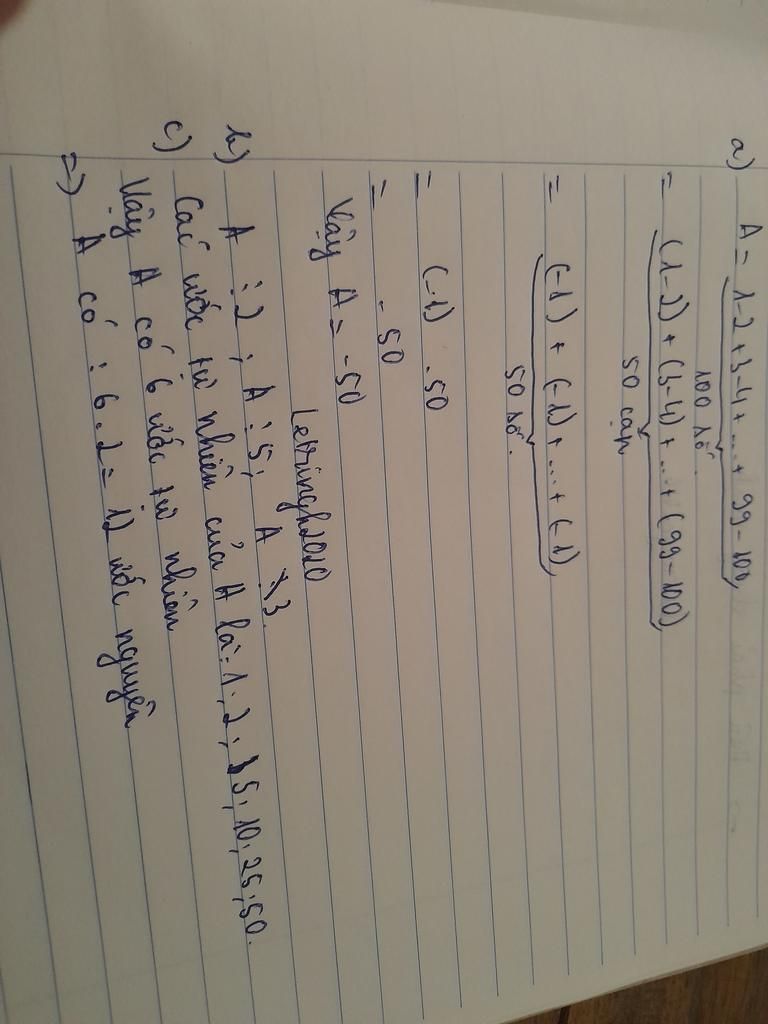 a) A = 1-2+3-4+...+ 99-100
100 số.
= (1-2) + (3-4) + ... + (99-100)
50 cặp
= (-1) + (-1) + ... + (-1)
50 số.
= (-1) . 50
= - 50
Vậy A = -50
b) A ⋮ 2 ; A ⋮ 5 ; A ⋮̸ 3.
c) Các ước tự nhiên của A là: 1; 2; 5; 10; 25; 50.
Vậy A có 6 ước tự nhiên
=) A có : 6.2 = 12 ước nguyên